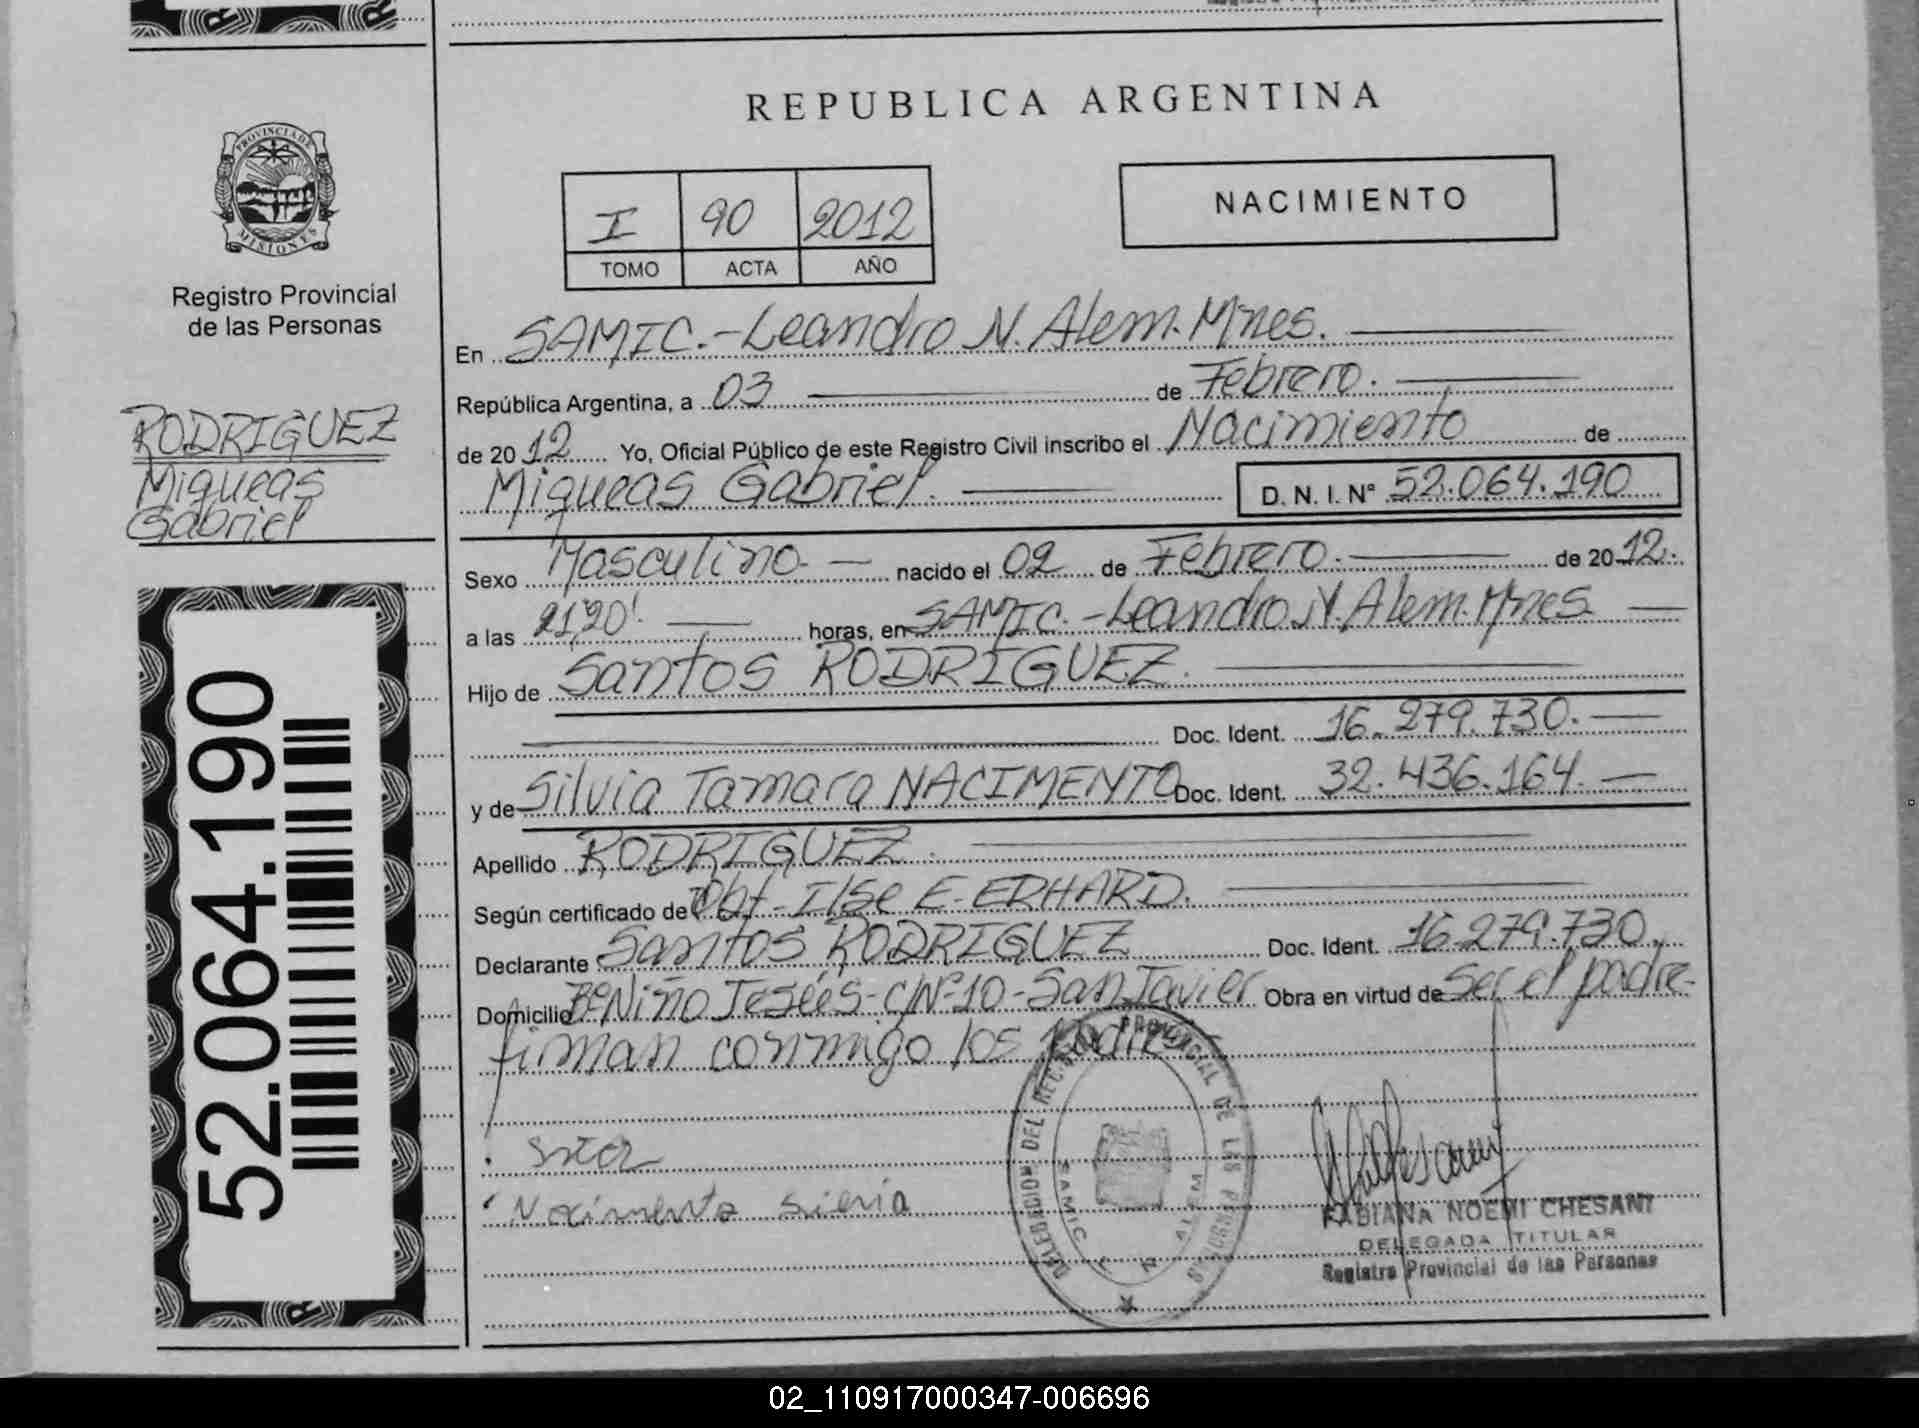 REPUBLICA ARGENTINA
PROVINCIA DE
MISIONES
Registro Provincial
de las Personas
RODRIGUEZ
Miqueas
Gabriel
52.064.190
I 90 2012
TOMO ACTA AÑO
NACIMIENTO
En SAMIC.-Leandro N. Alem. Mnes.
República Argentina, a 03 de Febrero.
de 2012 Yo, Oficial Público de este Registro Civil inscribo el Nacimiento de
Miqueas Gabriel. D. N. I. Nº 52.064.190
Sexo Masculino. nacido el 02 de Febrero. de 2012.
a las 21,20' horas, en SAMIC.-Leandro N. Alem. Mnes
Hijo de Santos RODRIGUEZ.
Doc. Ident. 16.279.730.
y de Silvia Tamara NACIMENTO Doc. Ident. 32.436.164.
Apellido RODRIGUEZ.
Según certificado de Obt. Ilse E. ERHARD.
Declarante Santos RODRIGUEZ Doc. Ident. 16.279.730.
Domicilio Bº Niño Jesús-C/Nº10-San Javier Obra en virtud de ser el padre-
firman conmigo los padres
Nacimento silvia
DELEGACION DEL REGISTRO PROVINCIAL DE LAS PERSONAS
SAMIC ALEM
FABIANA NOEMI CHESANI
DELEGADA TITULAR
Registro Provincial de las Personas
02_110917000347-006696